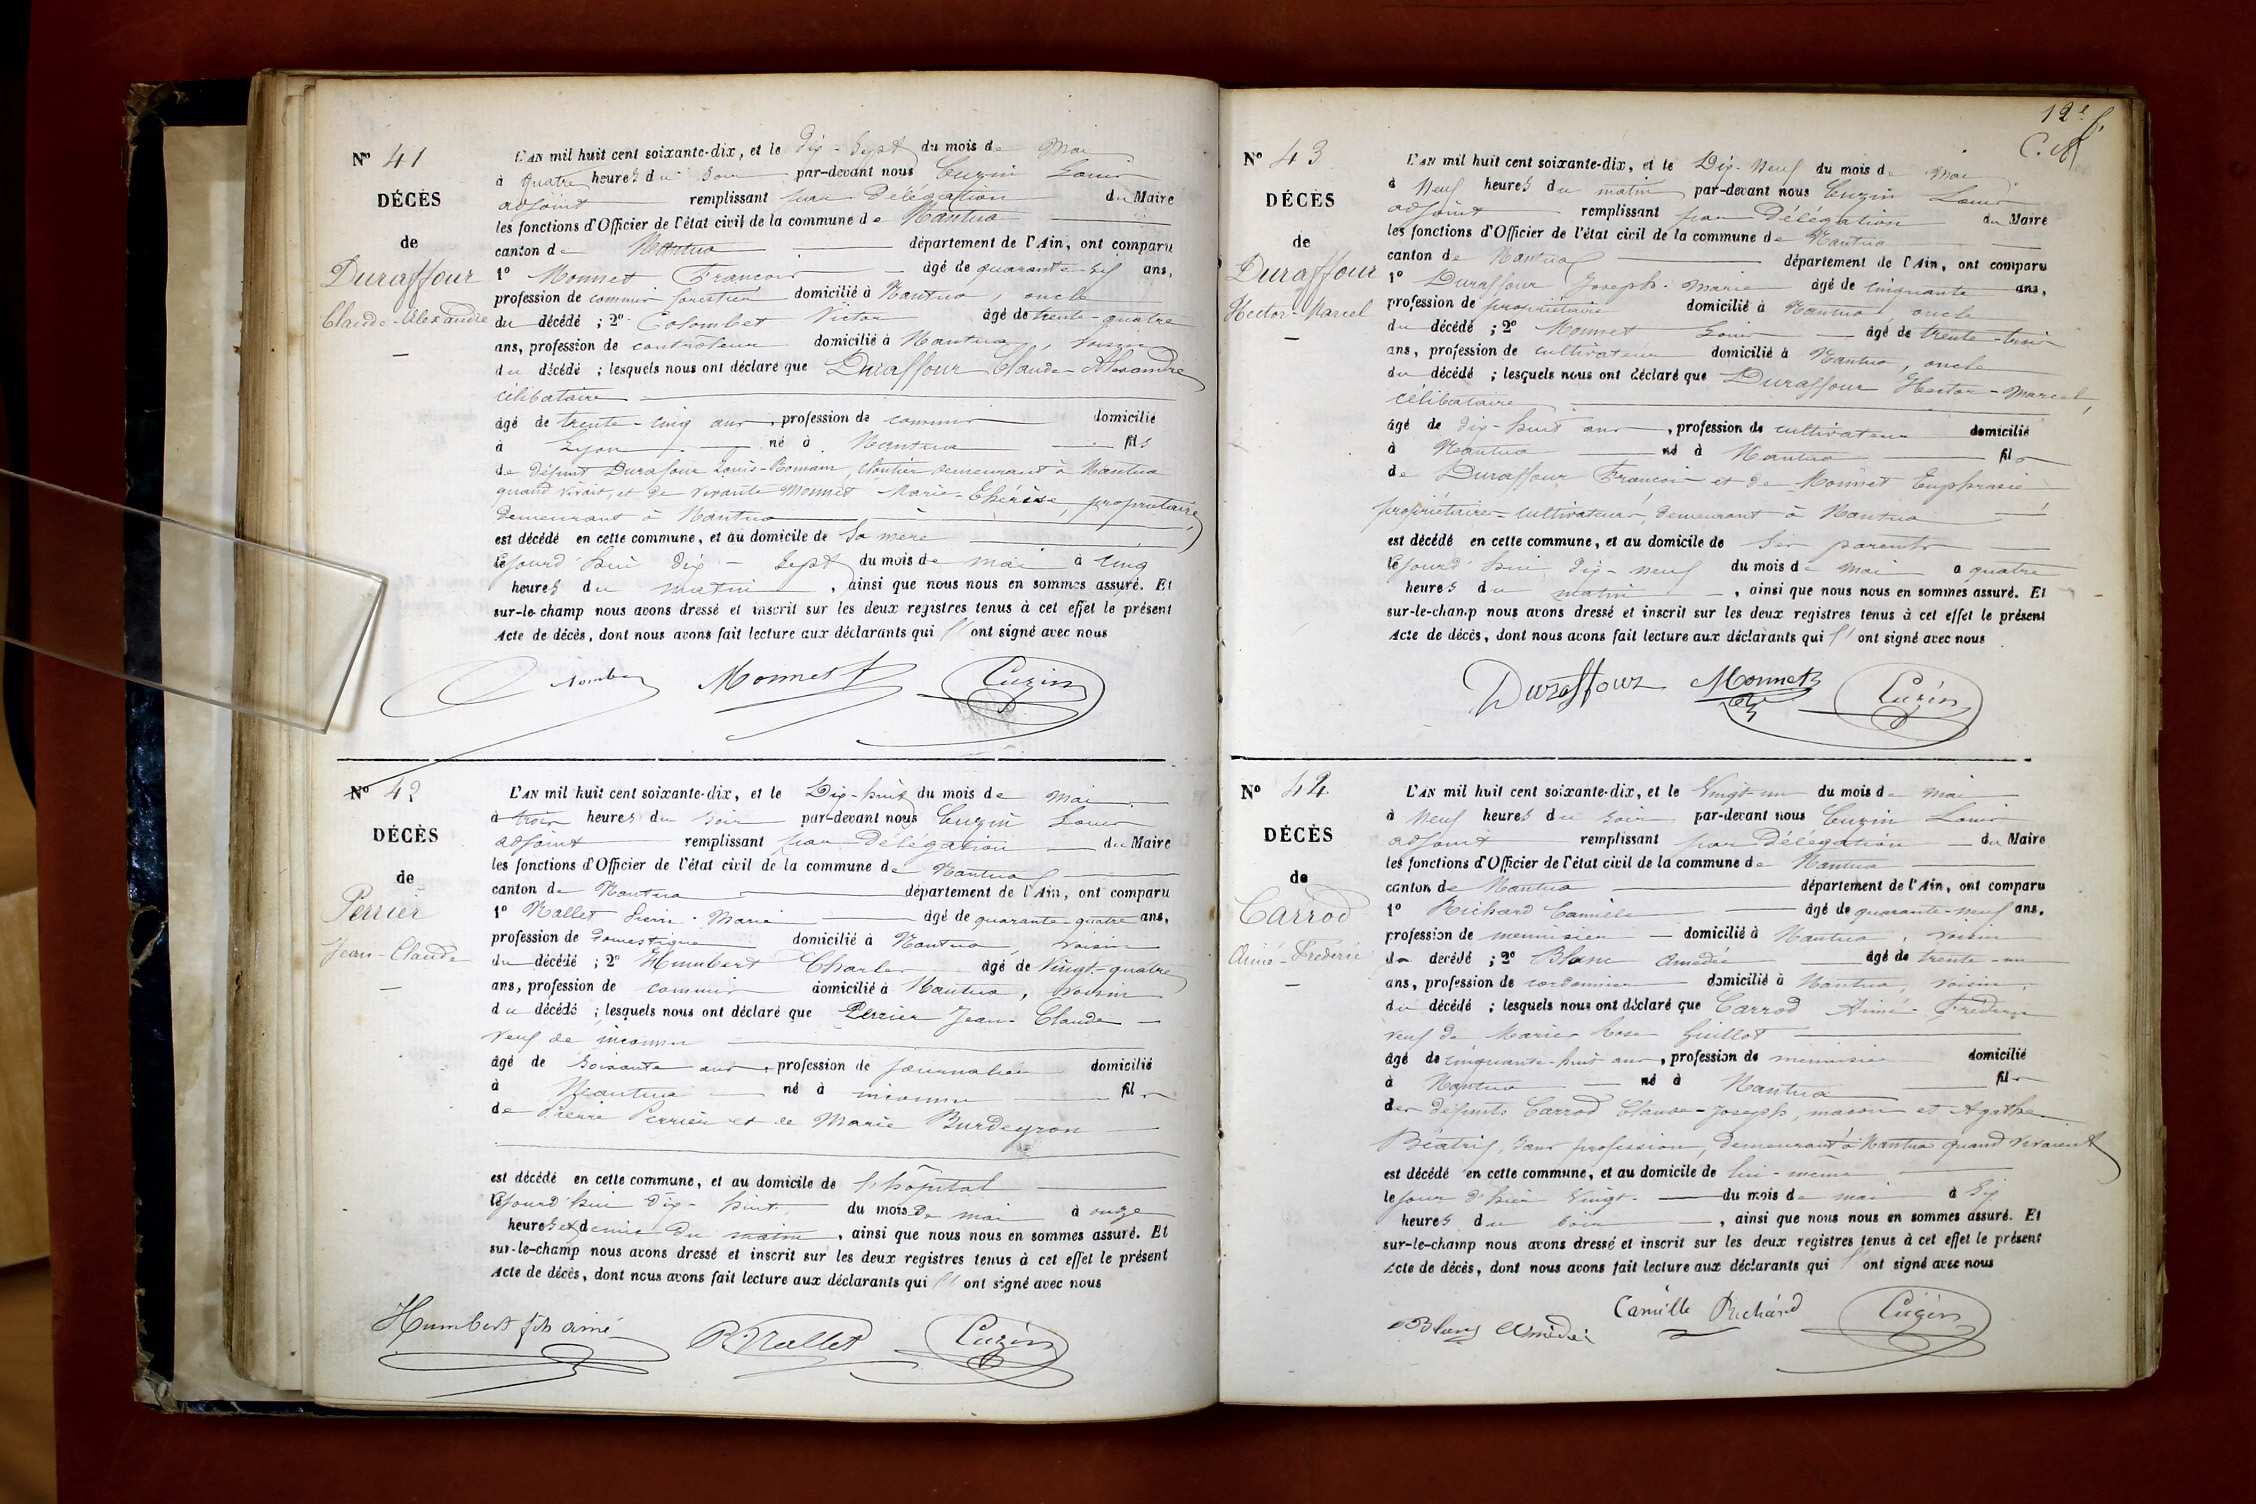 Nº 41
DÉCÈS
de
Duraffour
Claude-Alexandre
L'AN mil huit cent soixante-dix, et le Dix-Sept du mois de Mai
à quatre heures du soir par-devant nous Cuzin Louis
adjoint remplissant par Délégation du Maire
les fonctions d'Officier de l'état civil de la commune de Nantua
canton de Nantua département de l'Ain, ont comparu
1º Monnet François âgé de quarante-six ans,
profession de commis forestier domicilié à Nantua, oncle
du décédé ; 2º Colombet Victor âgé de trente-quatre
ans, profession de contrôleur domicilié à Nantua, voisin
du décédé ; lesquels nous ont déclaré que Duraffour Claude-Alexandre
célibataire
âgé de trente-cinq ans, profession de commis domicilié
à Lyon né à Nantua fils
de défunt Duraffour Louis-Romain, demeurant à Nantua
quand vivait, et de vivante Monnet Marie-Thérèse, propriétaire,
demeurant à Nantua
est décédé en cette commune, et au domicile de sa mère
cejourd'hui dix-sept du mois de mai à cinq
heures du matin, ainsi que nous nous en sommes assuré. Et
sur-le-champ nous avons dressé et inscrit sur les deux registres tenus à cet effet le présent
Acte de décès, dont nous avons fait lecture aux déclarants qui l'ont signé avec nous
Monnet Cuzin
Nº 42
DÉCÈS
de
Perrier
Jean-Claude
L'AN mil huit cent soixante-dix, et le Dix-huit du mois de mai
à trois heures du soir par-devant nous Cuzin Louis
adjoint remplissant par Délégation du Maire
les fonctions d'Officier de l'état civil de la commune de Nantua
canton de Nantua département de l'Ain, ont comparu
1º Nallet Pierre-Marie âgé de quarante-quatre ans,
profession de domestique domicilié à Nantua, voisin
du décédé ; 2º Humbert Charles âgé de vingt-quatre
ans, profession de commis domicilié à Nantua, voisin
du décédé ; lesquels nous ont déclaré que Perrier Jean-Claude
veuf de inconnu
âgé de soixante ans, profession de journalier domicilié
à Nantua né à inconnu fils
de Pierre Perrier et de Marie Burdeyron
est décédé en cette commune, et au domicile de l'hôpital
cejourd'hui dix-huit du mois de mai à onze
heures et demie du matin, ainsi que nous nous en sommes assuré. Et
sur-le-champ nous avons dressé et inscrit sur les deux registres tenus à cet effet le présent
Acte de décès, dont nous avons fait lecture aux déclarants qui l'ont signé avec nous
Humbert fils aimé Nallet Cuzin
12e f.
Nº 43
DÉCÈS
de
Duraffour
Hector-Marcel
L'AN mil huit cent soixante-dix, et le Dix-Neuf du mois de Mai
à Neuf heures du matin par-devant nous Cuzin Louis
adjoint remplissant par Délégation du Maire
les fonctions d'Officier de l'état civil de la commune de Nantua
canton de Nantua département de l'Ain, ont comparu
1º Duraffour Joseph-Marie âgé de cinquante ans,
profession de propriétaire domicilié à Nantua, oncle
du décédé ; 2º Monnet Louis âgé de trente-trois
ans, profession de cultivateur domicilié à Nantua, oncle
du décédé ; lesquels nous ont déclaré que Duraffour Hector-Marcel,
célibataire
âgé de dix-huit ans, profession de cultivateur domicilié
à Nantua né à Nantua fils
de Duraffour François et de Monnet Euphrasie
propriétaires-cultivateurs, demeurant à Nantua
est décédé en cette commune, et au domicile de ses parents
cejourd'hui dix-neuf du mois de mai à quatre
heures du matin, ainsi que nous nous en sommes assuré. Et
sur-le-champ nous avons dressé et inscrit sur les deux registres tenus à cet effet le présent
Acte de décès, dont nous avons fait lecture aux déclarants qui l'ont signé avec nous
Duraffour Monnet Cuzin
Nº 44
DÉCÈS
de
Carrod
Aimé-Frédéric
L'AN mil huit cent soixante-dix, et le Vingt-un du mois de mai
à Neuf heures du soir par-devant nous Cuzin Louis
adjoint remplissant par Délégation du Maire
les fonctions d'Officier de l'état civil de la commune de Nantua
canton de Nantua département de l'Ain, ont comparu
1º Richard Camille âgé de quarante-neuf ans,
profession de menuisier domicilié à Nantua, voisin
du décédé ; 2º Blanc Amédée âgé de trente-un
ans, profession de cordonnier domicilié à Nantua, voisin,
du décédé ; lesquels nous ont déclaré que Carrod Aimé-Frédéric
veuf de Marie-Rose Guillot
âgé de cinquante-huit ans, profession de menuisier domicilié
à Nantua né à Nantua fils
des défunts Carrod Claude-Joseph, maçon et Agathe
Béatrix, sans profession, demeurant à Nantua quand vivaient
est décédé en cette commune, et au domicile de lui-même
le jour d'hier vingt du mois de mai à six
heures du soir, ainsi que nous nous en sommes assuré. Et
sur-le-champ nous avons dressé et inscrit sur les deux registres tenus à cet effet le présent
Acte de décès, dont nous avons fait lecture aux déclarants qui l'ont signé avec nous
Blanc Amédée Camille Richard Cuzin